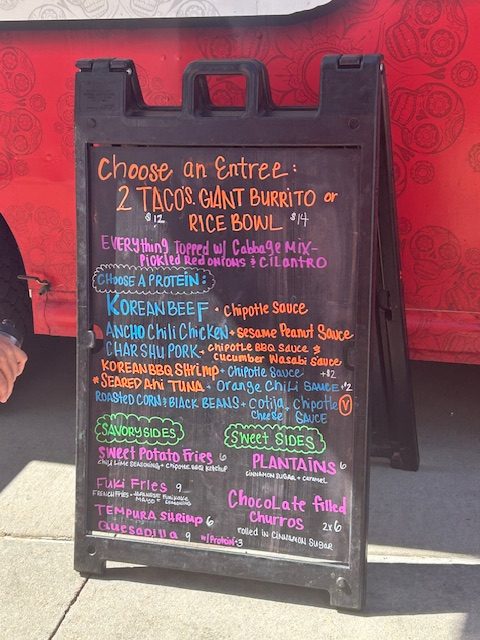 Choose an Entree:
2 TACO'S. GIANT BURRITO or
$12 RICE BOWL $14
EVERYthing TOPPED W/ Cabbage MIX-
PICKLED RED ONIONS & CILANTRO
CHOOSE A PROTEIN:
KOREAN BEEF + Chipotle SAUCE
ANCHO Chili ChicKEN + SESAME PEANUT SAUCE
CHAR SHU PORK + CHIPOTLE BBQ SAUCE &
CUCUMBER WASABI SAUCE
KOREAN BBQ SHRIMP + CHIPOTLE SAUCE +$2
*SEARED Ahi TUNA + ORANGE CHILI SAUCE +$2
ROASTED CORN & BLACK BEANS + COTIJA, CHIPOTLE V
CHEESE SAUCE
SAVORY SIDES
SWEET POTATO FRIES 6
CHILI LIME SEASONING + CHIPOTLE BBQ KETCHUP
FUKI FRIES 9
FRENCH FRIES + JAPANESE
MAYO + SEASONING
TEMPURA SHRIMP 6
QUESADILLA 9 w/PROTEIN +3
SWEET SIDES
PLANTAINS 6
CINNAMON SUGAR + CARAMEL
CHOCOLATE filled
CHURROS 2x6
rolled in CINNAMON SUGAR